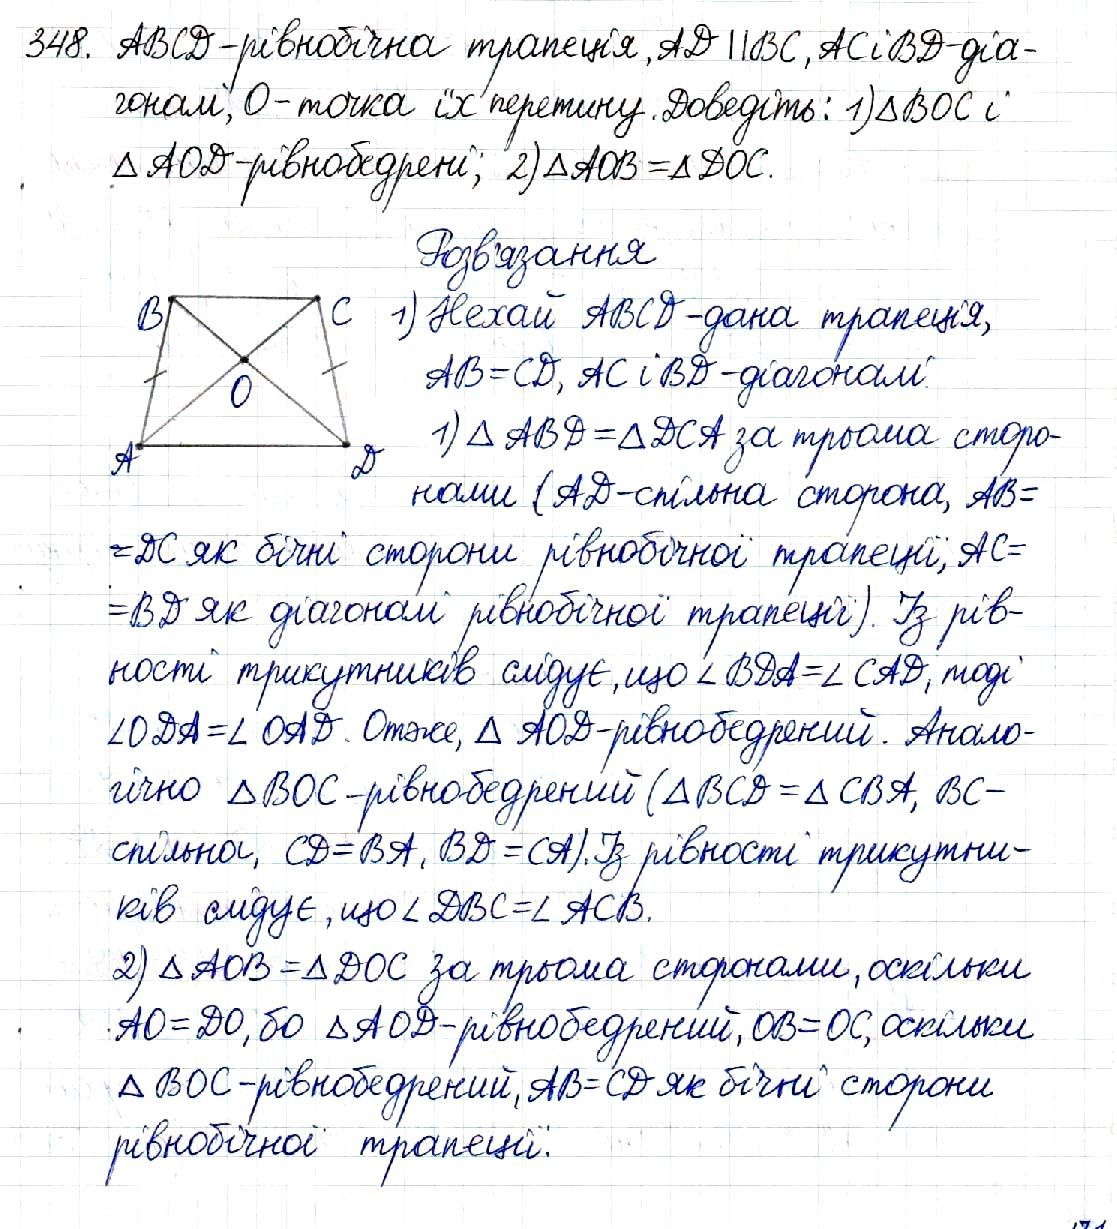 348. ABCD-рівнобічна трапеція, AD || BC, AC і BD-діа-
гоналі, O-точка їх перетину. Доведіть: 1) △ BOC і
△ AOD-рівнобедрені; 2) △ AOB = △ DOC.
Розв'язання
B
C
O
A
D
1) Нехай ABCD-дана трапеція,
AB = CD, AC і BD-діагоналі
1) △ ABD = △ DCA за трьома сторо-
нами (AD-спільна сторона, AB =
= DC як бічні сторони рівнобічної трапеції, AC =
= BD як діагоналі рівнобічної трапеції). Із рів-
ності трикутників слідує, що ∠ BDA = ∠ CAD, тоді
∠ ODA = ∠ OAD. Отже, △ AOD-рівнобедрений. Анало-
гічно △ BOC-рівнобедрений (△ BCD = △ CBA, BC-
спільна, CD = BA, BD = CA). Із рівності трикутни-
ків слідує, що ∠ DBC = ∠ ACB.
2) △ AOB = △ DOC за трьома сторонами, оскільки
AO = DO, бо △ AOD-рівнобедрений, OB = OC, оскільки
△ BOC-рівнобедрений, AB = CD як бічні сторони
рівнобічної трапеції.